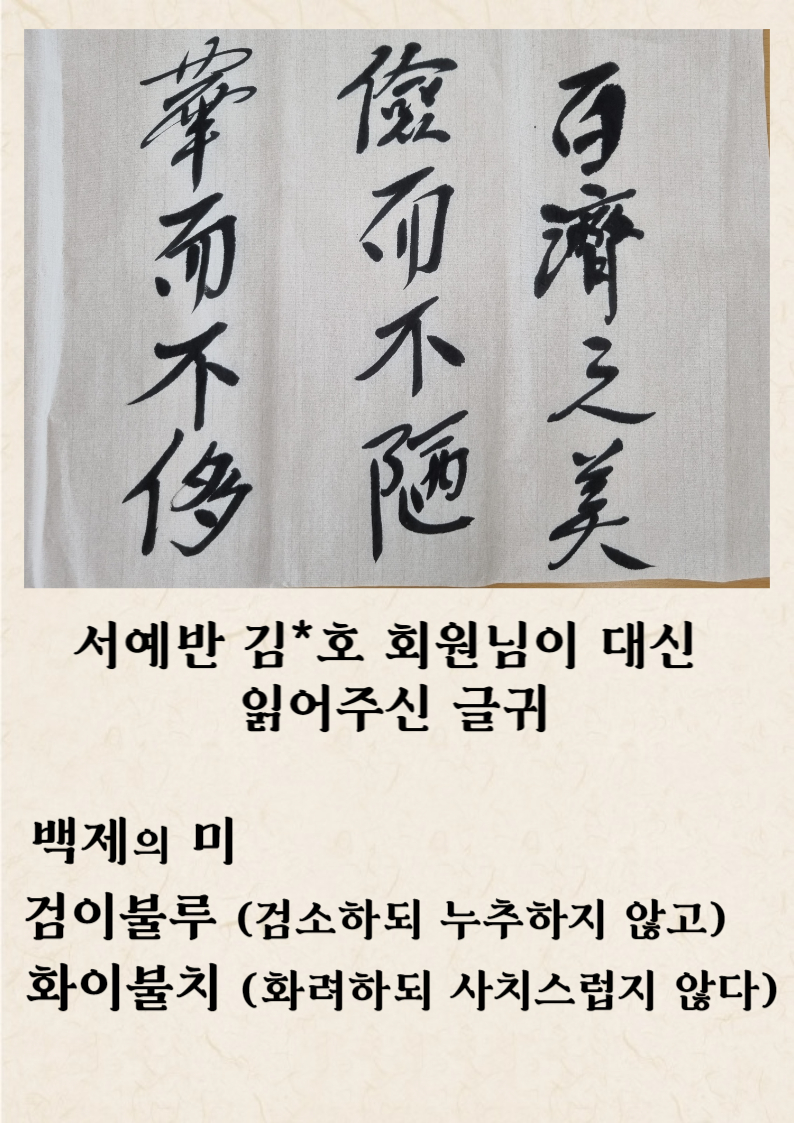 百濟之美
儉而不陋
華而不侈
서예반 김*호 회원님이 대신
읽어주신 글귀
백제의 미
검이불루 (검소하되 누추하지 않고)
화이불치 (화려하되 사치스럽지 않다)